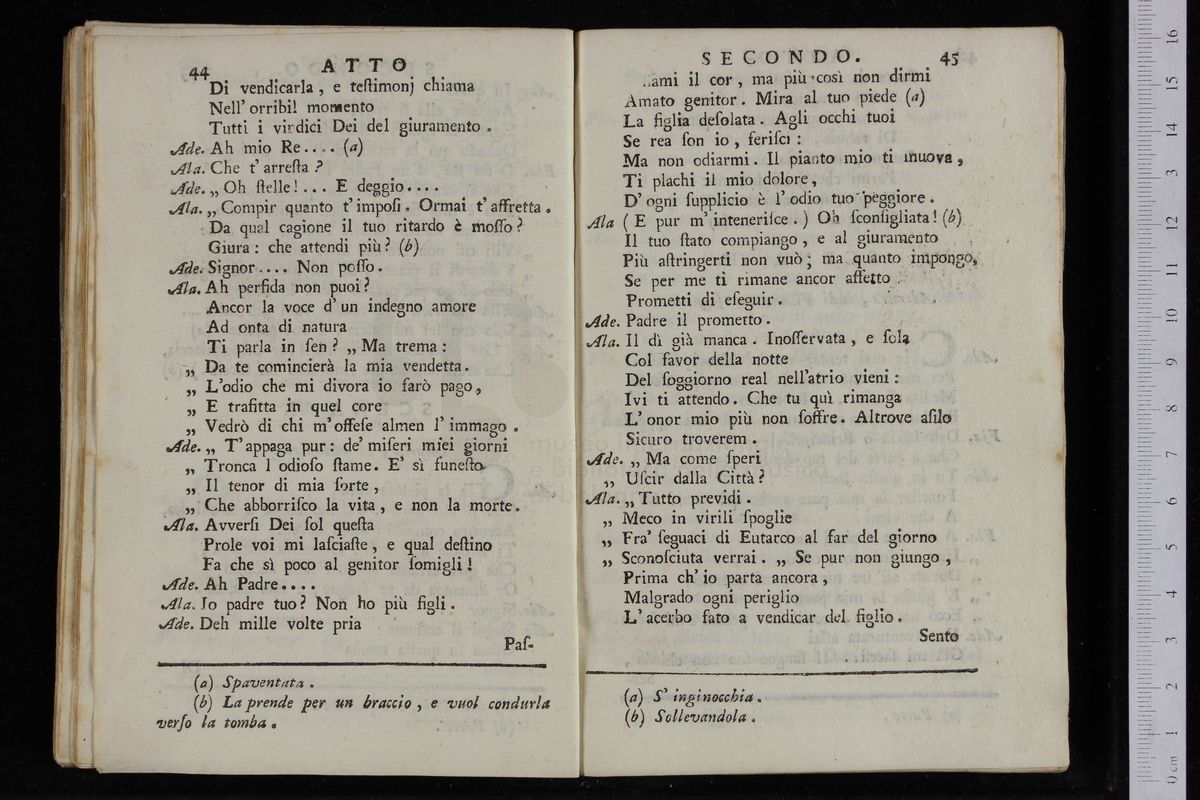 44 ATTO
Di vendicarla , e teſtimonj chiama
Nell' orribil momento
Tutti i virdici Dei del giuramento .
Ade. Ah mio Re.... (a)
Ala. Che t' arreſta ?
Ade. „ Oh ſtelle!... E deggio....
Ala. „ Compir quanto t' impoſi . Ormai t' affretta .
Da qual cagione il tuo ritardo è moſſo?
Giura : che attendi più? (b)
Ade. Signor.... Non poſſo.
Ala. Ah perfida non puoi?
Ancor la voce d' un indegno amore
Ad onta di natura
Ti parla in ſen? „ Ma trema :
„ Da te comincierà la mia vendetta.
„ L'odio che mi divora io farò pago,
„ E trafitta in quel core
„ Vedrò di chi m' offeſe almen l' immago .
Ade. „ T' appaga pur : de' miſeri miei giorni
„ Tronca l odioſo ſtame. E' sì funeſto
„ Il tenor di mia ſorte ,
„ Che abborriſco la vita , e non la morte.
Ala. Avverſi Dei ſol queſta
Prole voi mi laſciaſte , e qual deſtino
Fa che sì poco al genitor ſomigli!
Ade. Ah Padre....
Ala. Io padre tuo? Non ho più figli.
Ade. Deh mille volte pria
Paſ-
(a) Spaventata .
(b) La prende per un braccio , e vuol condurla
verſo la tomba .
SECONDO. 45
ami il cor , ma più così non dirmi
Amato genitor . Mira al tuo piede (a)
La figlia deſolata . Agli occhi tuoi
Se rea ſon io , feriſci :
Ma non odiarmi . Il pianto mio ti muova ,
Ti plachi il mio dolore,
D' ogni ſupplicio è l' odio tuo peggiore .
Ala ( E pur m' inteneriſce . ) Oh ſconſigliata! (b)
Il tuo ſtato compiango , e al giuramento
Più aſtringerti non vuò ; ma quanto impongo,
Se per me ti rimane ancor affetto
Prometti di eſeguir .
Ade. Padre il prometto .
Ala. Il dì già manca . Inoſſervata , e ſola
Col favor della notte
Del ſoggiorno real nell'atrio vieni :
Ivi ti attendo . Che tu quì rimanga
L' onor mio più non ſoffre. Altrove aſilo
Sicuro troverem .
Ade. „ Ma come ſperi
„ Uſcir dalla Città ?
Ala. „ Tutto previdi .
„ Meco in virili ſpoglie
„ Fra' ſeguaci di Eutarco al far del giorno
„ Sconoſciuta verrai . „ Se pur non giungo ,
Prima ch' io parta ancora ,
Malgrado ogni periglio
L' acerbo fato a vendicar del figlio .
Sento
(a) S' inginocchia .
(b) Sollevandola .
0 cm 1 2 3 4 5 6 7 8 9 10 11 12 13 14 15 16